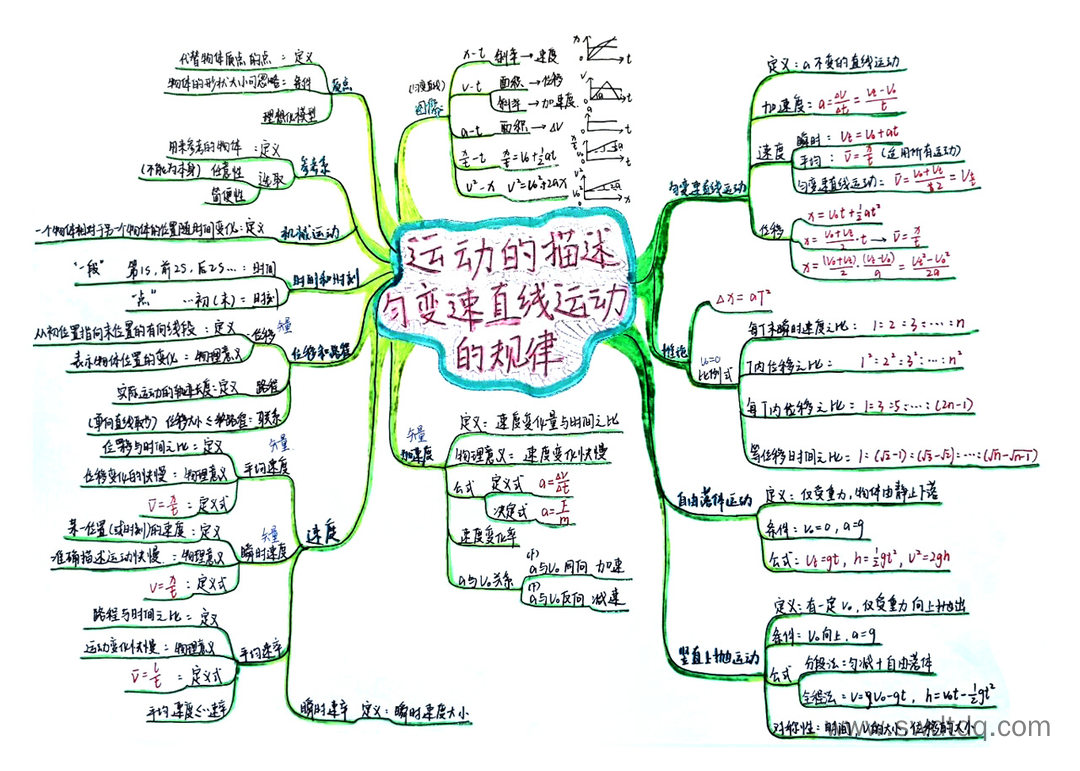 运动的描述
匀变速直线运动
的规律
质点
代替物体质点的点：定义
物体的形状大小可忽略：条件
理想化模型
参考系
用来参考的物体：定义
(不能为本身) 任意性 选取
简便性
机械运动
一个物体相对于另一个物体的位置随时间变化：定义
时间和时刻
"一段" 第1s,前2s,后2s…：时间
"点" …初(末)：时刻
位移和路程
矢量
位移
从初位置指向末位置的有向线段：定义
表示物体位置的变化：物理意义
实际运动的轨迹长度：定义 路程
(单向直线取等) 位移大小≤路程：联系
速度
矢量
平均速度
位移与时间之比：定义
位移变化的快慢：物理意义
v̄=x/t：定义式
矢量
瞬时速度
某一位置(或时刻)的速度：定义
准确描述运动快慢：物理意义
v=x/t：定义式
平均速率
路程与时间之比：定义
运动变化快慢：物理意义
v̄=l/t：定义式
平均速度≤…速率
瞬时速率 定义：瞬时速度大小
(匀变直线)
图像
x-t 斜率→速度
v-t 面积→位移
斜率→加速度
a-t 面积→ΔV
x/t-t x/t=v₀+½at
v²-x v²=v₀²+2ax
矢量
加速度
定义：速度变化量与时间之比
物理意义：速度变化快慢
公式 定义式 a=ΔV/Δt
决定式 a=F/m
速度变化率
a与v₀关系
a与v₀同向 加速
a与v₀反向 减速
匀变速直线运动
定义：a不变的直线运动
加速度：a=ΔV/Δt=(Vt-V₀)/t
速度
瞬时：Vt=V₀+at
平均：v̄=x/t(适用所有运动)
匀变速直线运动：v̄=(V₀+Vt)/2=V t/2
位移
x=V₀t+½at²
x=(V₀+Vt)/2·t→v̄=x/t
x=(V₀+Vt)/2·(Vt-V₀)/a=(Vt²-V₀²)/2a
推论
Δx=aT²
V₀=0
比例式
每T末瞬时速度之比：1:2:3:…:n
T内位移之比：1²:2²:3²:…:n²
每T内位移之比：1:3:5:…:(2n-1)
等位移时间之比：1:(√2-1):(√3-√2):…:(√n-√n-1)
自由落体运动
定义：仅受重力,物体由静止下落
条件：v₀=0,a=g
公式：Vt=gt,h=½gt²,V²=2gh
竖直上抛运动
定义：有一定v₀,仅受重力向上抛出
条件：v₀向上,a=g
公式
分段法：匀减+自由落体
全程法：v=v₀-gt,h=v₀t-½gt²
对称性：时间,v的大小,位移的大小
www.swdtdq.com